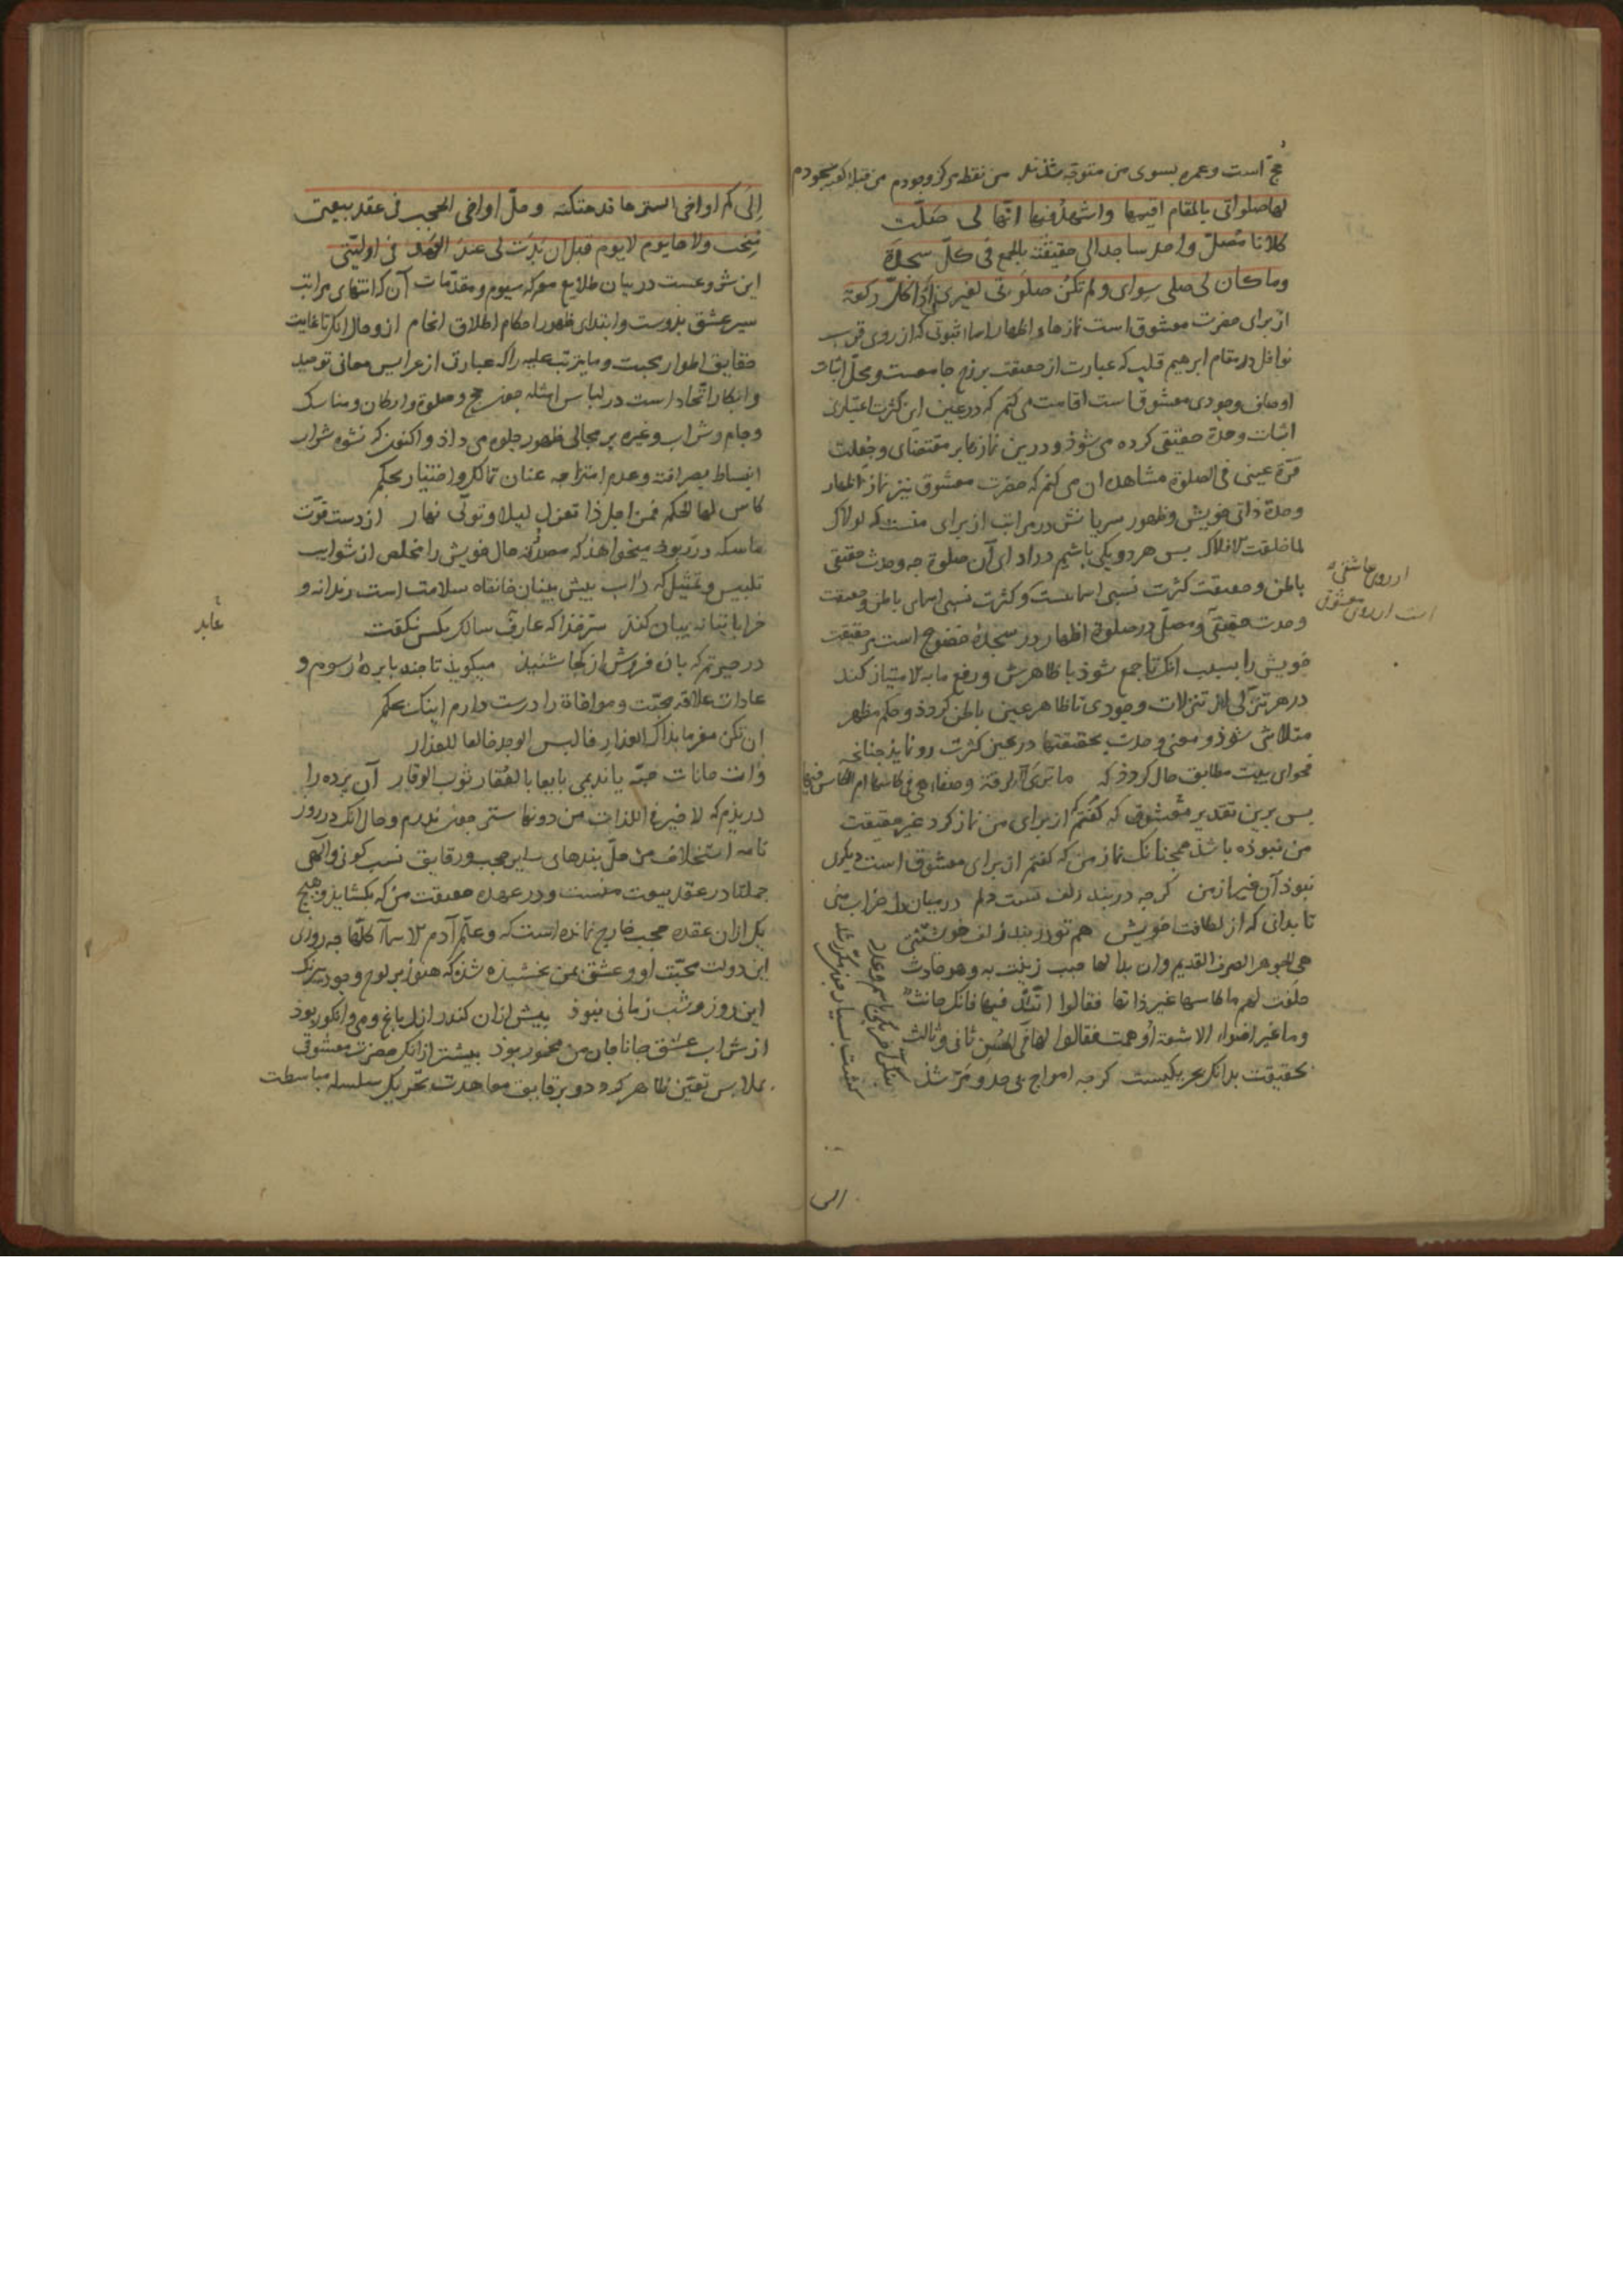 حج است و عمره بسوی من متوجه شدند من نقطه مرکز وجودم من قبله کعبه سجودم
لها صلواتی بالمقام اقیمها واشهد فیها انّها لی صلّت
کلانا مصلّ واحد ساجد الی حقیقته بالجمع فی کلّ سجدة
وما کان لی صلی سوای ولم تکن صلوتی لغیری فی ادا کلّ رکعة
از برای حضرت معشوق است نمازها و اظهار اسما ثبوتی که از روی قرب
نوافل در مقام ابرهیم قلب که عبارت از حقیقت برزخ جامعست و محلّ اثبات
اوصاف وجودی معشوق است اقامت می کنم که در عین این کثرت اعتباری
اثبات وحدة حقیقی کرده می شوذ و درین نمازها بر مقتضای وجعلت
قرّة عینی فی الصلوة مشاهده ان می کنم که حضرت معشوق نیز نماز اظهار
وحدة ذاتی خویش وظهور سریانش در مراتب از برای منست که لولاک
لما خلقت الافلاک بس هر دو یکی باشیم در ادای آن صلوة چه وحدت حقیقی
باطن و حقیقت کثرت نسبی اسماست و کثرت نسبی اسمای باطن و حقیقت
وحدت حقیقی و مصلّی در صلوة اظهار در سجدهٔ خضوع است بر حقیقت
از روی عاشقی
است از روی معشوقی
خویش را بسبب انک تا جمع شوذ با ظاهرش و رفع ما به الامتیاز کند
در هر تنزّلی از تنزلات وجودی تا ظاهر عین باطن کردد و حکم مظهر
متلاشی شوذ و معنی وحدت بحقیقتها در عین کثرت رو نماید جنانجه
فحوای بیت مطابق حال کردد که ما تری الرقة وصفاء هی فی کاسها ام الکاس فیها
بس برین تقدیر معشوق که کفتم از برای من نماز کرد غیر حقیقت
من نبوذه باشد همجنانک نماز من که کفتم از برای معشوق است دیکری
نبوذ آن غیر از من کرجه در بند زلف تست دلم در میان دل خراب منی
تا بدانی که از لطافت خویش هم تو در بند زلف خویشتنی
هی الجوهر الصرف القدیم وان بدا لها حبب زینت به وهو حادث
حلفت لهم ما کاسها غیر ذاتها فقالوا اتّئد فیها فانک حانث
وما غیر اضواء الاشعة اوهمت فقالوا لها فی الحسن ثانی وثالث
بحقیقت بدانک بحر یکیست کرجه امواج بی حد و مرّ شذ
کشت بسیار چون مکرر شد
الی
إلی کم اواخی الستر ها قد هتکته وحلّ اواخی الحجب فی عقد بیعتی
مُنحت ولاها یوم لا یوم قبل ان بدت لی عند العهد فی اولیّتی
این شروعست در بیان طلایع معرکه سیوم و مقدّمات آن که انتهای مراتب
سیر عشق بذوست و ابتدای ظهور احکام اطلاق انجام از و حال انک تا غایت
حقایق اطوار محبت و ما یترتب علیه را که عبارت از عرایس معانی توحید
وابکار اتّحاد است در لباس امثله جون حج و صلوة و ارکان و مناسک
و جام و شراب و غیره بر مجالی ظهور جلوه می داذ و اکنون که نشوه شراب
انبساط بصرافته و عدم امتزاجه عنان تمالک و اختیار بحکم
کاس لها الحکم فمن اجل ذا تعزل لیلا وتولّی نهار از دست قوّت
ماسکه در ربود میخواهد که مصدوقه حال خویش را مخلص از شوایب
تلبیس و تمثیل که داب بیش بینان خانقاه سلامت است رندانه و
خراباتیانه بیان کند سرّ خدا که عارف سالک بکس نکفت
عابد
در حیرتم که باده فروش از کجا شنید میکوید تا جند با پردهٔ رسوم و
عادات علاقه محبّت و موافاة را درست دارم اینک بحکم
إن تکن مغرما بذاک العذار فالبس الوجد خالعا للعذار
وات حانات حبّه یا ندیمی بایعا بالعُقار ثوب الوقار آن پرده را
دریذم که لا خیر فی اللذات من دونها ستر جون ندرم و حال انک در روز
نامه استخلاف من حلّ بندهای سایر حجب و رقایق نسب کونی و الهی
جملتا در عقد بیعت منست و در عهده حقیقت من که بکشاید و هیچ
یک ازان عقده حجب خارج نمانده است که وعلّم آدم الاسماء کلّها چه روزی
این دولت محبّت او و عشق بمن بخشیده شذ که هنوز بر لوح وجود بیرنک
این روز و شب زمانی نبوذ بیش ازان کندر ازل باغ و می و انکور بوذ
از شراب عشق جانا جان من مخمور بوذ بیشتر ازانک حضرت معشوقی
بملابس تعیّن ظاهر کردد و بر قایق معاهدت تحریک سلسله مباسطت